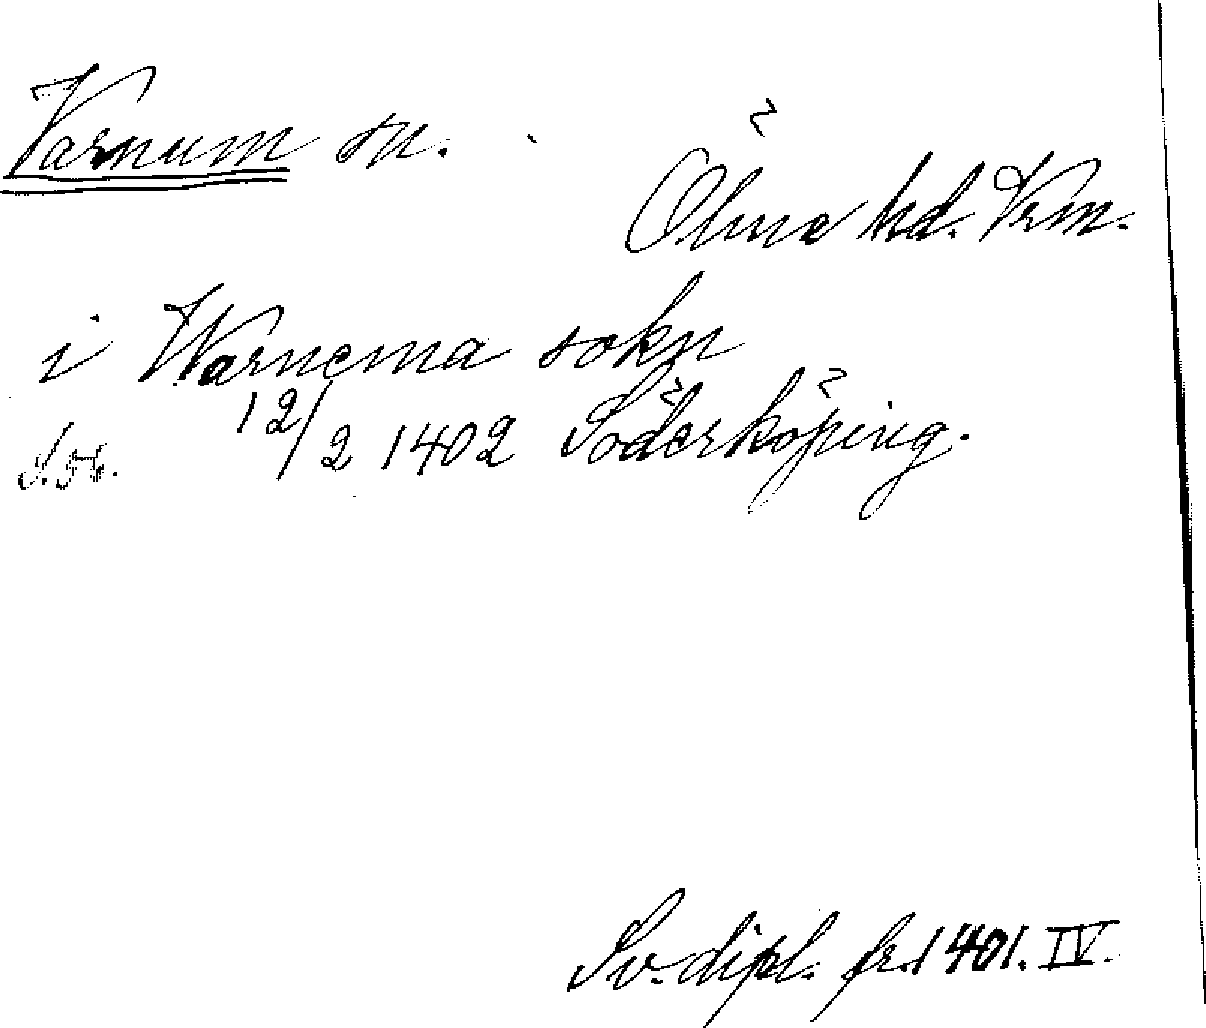 Varnum sn.
Ölme hd. Vrm.
i Warnema sokn
12/2 1402 Söderköping.
Sv. dipl. fr. 1401. IV.